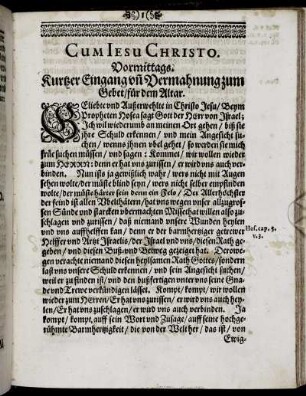 1
CUM IESU CHRISTO.
Vormittags.
Kurtzer Eingang uñ Vermahnung zum
Gebet / für dem Altar.
GEliebte und Außerwehlte in Christo Jesu / Beym
Propheten Hosea sagt Gott der Herr von Israel:
Ich wil wiederumb an meinen Ort gehen / biß sie
ihre Schuld erkennen / und mein Angesicht su-
chen / wenns ihnen ubel gehet / so werden sie mich
früe suchen müssen / und sagen: Kommet / wir wollen wieder
zum HERRN: denn er hat uns zurissen / er wird uns auch ver-
binden. Nun ists ja gewißlich wahr / wers nicht mit Augen
sehen wolte / der müste blind seyn / wers nicht selber empfinden
wolte / der müste härter sein denn ein Fels / Der Allerhöchste
der feind ist allen Ubelthätern / hat uns wegen unser allzugros-
sen Sünde und starcken ubermachten Missethat willen also zu-
schlagen und zurissen / daß niemand unsere Wunden heylen
und uns auffhelffen kan / denn er der barmhertziger getrewer
Helffer und Artzt Israelis / der Israel und uns / diesen Rath ge-
geben / und diesen Buß und Betweg gezeiget hat. Derowe-
gen verachte niemand diesen heylsamen Rath Gottes / sondern
last uns unsere Schuld erkennen / und sein Angesicht suchen /
weil er zu finden ist / und den bußfertigen unter uns seine Gna-
de und Trewe verkündigen lässet. Kompt / kompt / wir wollen
wieder zum HErrn / Er hat uns zurissen / er wird uns auch hey-
len / Er hat uns zuschlagen / er wird uns auch verbinden. Ja
kompt / kompt / auff sein Wort und Zusage / auff seine hochge-
rühmte Barmhertzigkeit / die von der Welt her / das ist / von
Ewig-
Hos. cap. 5.
v. 5.